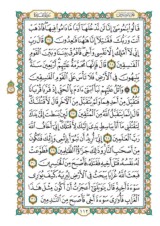 قَالُوا۟ يَـٰمُوسَىٰٓ إِنَّا لَن نَّدْخُلَهَآ أَبَدًا مَّا دَامُوا۟ فِيهَا فَٱذْهَبْ
أَنتَ وَرَبُّكَ فَقَـٰتِلَآ إِنَّا هَـٰهُنَا قَـٰعِدُونَ قَالَ رَبِّ
إِنِّى لَآ أَمْلِكُ إِلَّا نَفْسِى وَأَخِى فَٱفْرُقْ بَيْنَنَا وَبَيْنَ ٱلْقَوْمِ
ٱلْفَـٰسِقِينَ قَالَ فَإِنَّهَا مُحَرَّمَةٌ عَلَيْهِمْ أَرْبَعِينَ سَنَةً
يَتِيهُونَ فِى ٱلْأَرْضِ فَلَا تَأْسَ عَلَى ٱلْقَوْمِ ٱلْفَـٰسِقِينَ
وَٱتْلُ عَلَيْهِمْ نَبَأَ ٱبْنَىْ ءَادَمَ بِٱلْحَقِّ إِذْ قَرَّبَا قُرْبَانًا
فَتُقُبِّلَ مِنْ أَحَدِهِمَا وَلَمْ يُتَقَبَّلْ مِنَ ٱلْـَٔاخَرِ قَالَ لَأَقْتُلَنَّكَ
قَالَ إِنَّمَا يَتَقَبَّلُ ٱللَّهُ مِنَ ٱلْمُتَّقِينَ لَئِنۢ بَسَطتَ
إِلَىَّ يَدَكَ لِتَقْتُلَنِى مَآ أَنَا۠ بِبَاسِطٍ يَدِىَ إِلَيْكَ لِأَقْتُلَكَ إِنِّىٓ أَخَافُ ٱللَّهَ
رَبَّ ٱلْعَـٰلَمِينَ إِنِّىٓ أُرِيدُ أَن تَبُوٓأَ بِإِثْمِى وَإِثْمِكَ فَتَكُونَ
مِنْ أَصْحَـٰبِ ٱلنَّارِ وَذَٰلِكَ جَزَٰٓؤُا۟ ٱلظَّـٰلِمِينَ فَطَوَّعَتْ
لَهُۥ نَفْسُهُۥ قَتْلَ أَخِيهِ فَقَتَلَهُۥ فَأَصْبَحَ مِنَ ٱلْخَـٰسِرِينَ
فَبَعَثَ ٱللَّهُ غُرَابًا يَبْحَثُ فِى ٱلْأَرْضِ لِيُرِيَهُۥ كَيْفَ يُوَٰرِى
سَوْءَةَ أَخِيهِ قَالَ يَـٰوَيْلَتَىٰٓ أَعَجَزْتُ أَنْ أَكُونَ مِثْلَ هَـٰذَا
ٱلْغُرَابِ فَأُوَٰرِىَ سَوْءَةَ أَخِى فَأَصْبَحَ مِنَ ٱلنَّـٰدِمِينَ
١١٢